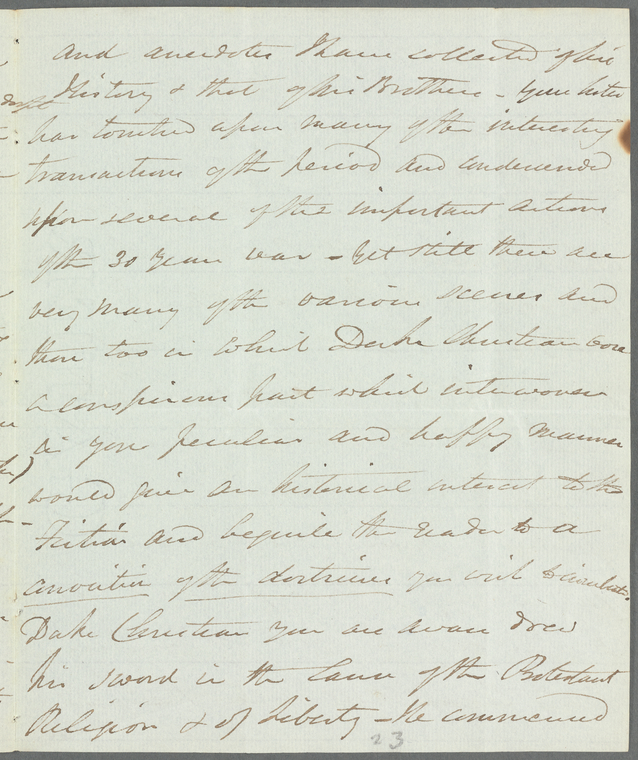 and anecdotes I have collected of his
History & that of his Brothers - Your letter
has touched upon many of the interesting
transactions of the period and condescended
upon several of the important actions
of the 30 Years war - Yet still there are
very many of the various scenes and
those too in which Duke Christian bore
a conspicuous part which interwoven
in your peculiar and happy manner
would give an historical interest to the
Fiction and beguile the reader to a
conviction of the doctrines you wish to inculcate.
Duke Christian you are aware drew
his sword in the Cause of the Protestant
Religion & of Liberty - He commenced
23